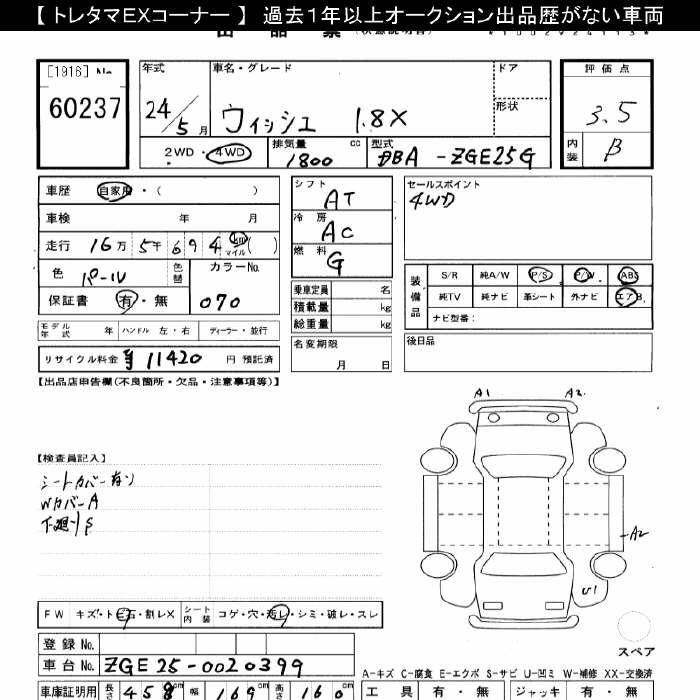 【 トレタマEXコーナー 】 過去１年以上オークション出品歴がない車両
[1916] No. 60237
年式 24/5月
車名・グレード ウィッシュ 1.8X
ドア
形状
評価点 3.5
内装 B
2WD・4WD
排気量 1800 cc
型式 DBA -ZGE25G
車歴 自家用・( )
車検 年 月
走行 16万5千694 km マイル ( )
色 パール 色替
カラーNo. 070
保証書 有・無
モデル年式 年 ハンドル 左・右 ディーラー・並行
リサイクル料金 ¥11420 円 預託済
シフト AT
冷房 AC
燃料 G
乗車定員 名
積載量 kg
総重量 kg
名変期限 月 日
セールスポイント
4WD
装備品 S/R 純A/W P/S P/W ABS
純TV 純ナビ 革シート 外ナビ エアB
ナビ型番：
後日品
【出品店申告欄(不良箇所・欠品・注意事項等)】
【検査員記入】
シートカバー有り
Wカバー A
下廻り S
A1 A2
A2
U1
スペア
FW キズ・ト石・割レX シート内装 コゲ・穴・汚レ・シミ・破レ・スレ
登録 No.
車台 No. ZGE25-0020399
A-キズ C-腐食 E-エクボ S-サビ U-凹ミ W-補修 XX-交換済
車庫証明用 長さ 458cm 幅 169cm 高さ 160
工具 有・無 ジャッキ 有・無